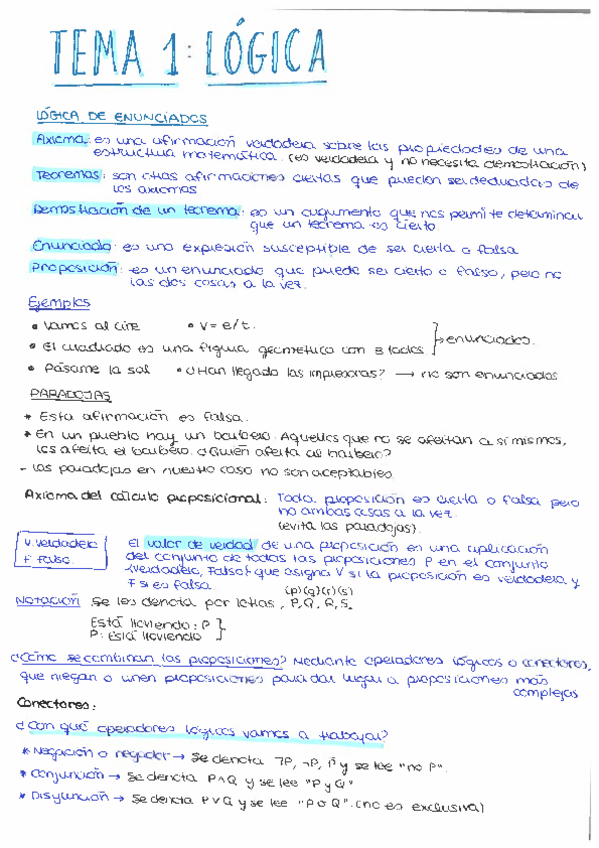 TEMA 1: LÓGICA
LÓGICA DE ENUNCIADOS
Axioma: es una afirmación verdadera sobre las propiedades de una
estructura matemática. (es verdadera y no necesita demostración)
Teoremas: son otras afirmaciones ciertas que pueden ser deducidas de
los axiomas
Demostración de un teorema: es un argumento que nos permite determinar
que un teorema es cierto
Enunciado: es una expresión susceptible de ser cierta o falsa
Proposición: es un enunciado que puede ser cierto o falso, pero no
las dos cosas a la vez.
Ejemplos
• Vamos al cine • v = e/t.
• El cuadrado es una figura geometrica con 3 lados } enunciados.
• Pásame la sal • ¿Han llegado las impresoras? → no son enunciados
PARADOJAS
* Esta afirmación es falsa.
* En un pueblo hay un barbero. Aquellos que no se afeitan a si mismos,
los afeita el barbero. ¿Quién afeita al barbero?
- Las paradojas en nuestro caso no son aceptables.
Axioma del cálculo proposicional: Toda proposición es cierta o falsa pero
no ambas cosas a la vez.
(evita las paradojas).
V. verdadera
F falso.
El valor de verdad de una proposición es una aplicación
del conjunto de todas las proposiciones P en el conjunto
{Verdadero, Falso} que asigna V si la proposición es verdadera y
F si es falsa.
(p)(q)(r)(s)
Notación Se les denota por letras, P, Q, R, S.
Está lloviendo: P }
P: Está lloviendo
¿Cómo se combinan las proposiciones? Mediante operadores lógicos o conectores,
que niegan o unen proposiciones para dar lugar a proposiciones más
complejas
Conectores:
¿Con qué operadores lógicos vamos a trabajar?
* Negación o negador → Se denota ⅂P, ¬P, P̄ y se lee "no P".
* Conjunción → Se denota P∧Q y se lee "P y Q"
* Disyunción → Se denota P∨Q y se lee "P o Q". (no es exclusiva)